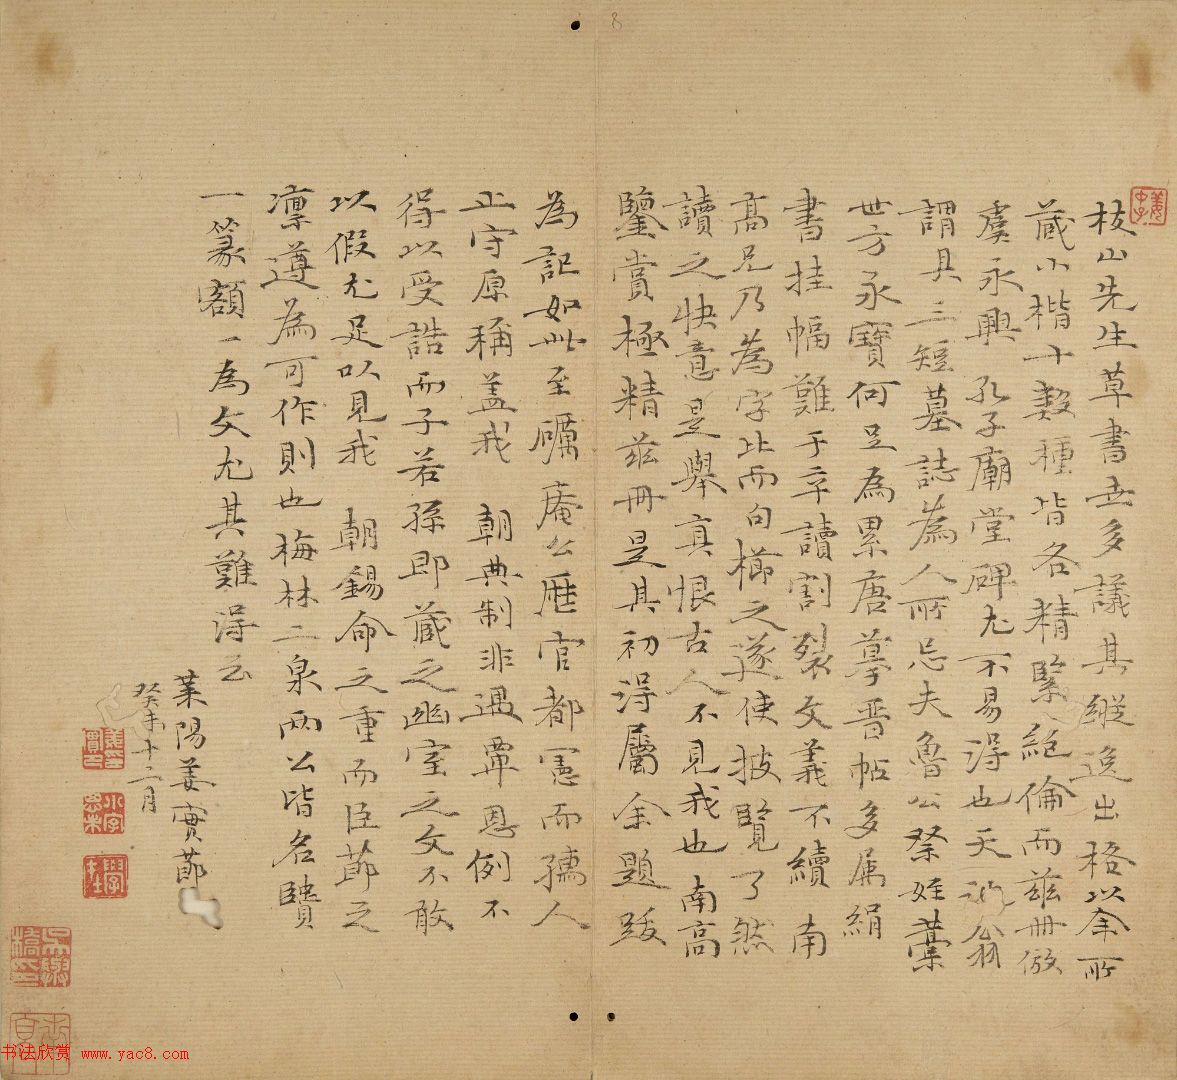 枝山先生草書世多議其縱逸出格以余所
藏小楷十數種皆各精緊絕倫而茲冊倣
虞永興孔子廟堂碑尤不易得也天池翁
謂具三短墓誌為人所忌夫魯公祭姪藁
世方永寶何足為累唐摹晉帖多属絹
書挂幅難于卒讀割裂文義不續南
高兄乃為字比而句櫛之遂使披覽了然
讀之快意是舉真恨古人不見我也南高
鑒賞極精茲冊是其初得屬余題跋
為記如此至礪庵公歷官都憲而孺人
止守原稱盖我 朝典制非遇覃恩例不
得以受誥而子若孫即藏之幽室之文不敢
以假尤足以見我 朝錫命之重而臣節之
凜遵為可作則也梅林二泉兩公皆名賢
一篆額一為文尤其難得云
萊陽姜實節
癸未十二月
姜實節印
小字思未
學在
書法欣赏 www.yac8.com